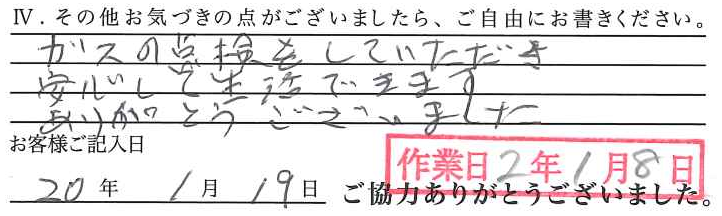 Ⅳ．その他お気づきの点がございましたら、ご自由にお書きください。
ガスの点検をしていただき
安心して生活できます
ありがとうございました
お客様ご記入日
作業日2年1月8日
20年1月19日 ご協力ありがとうございました。